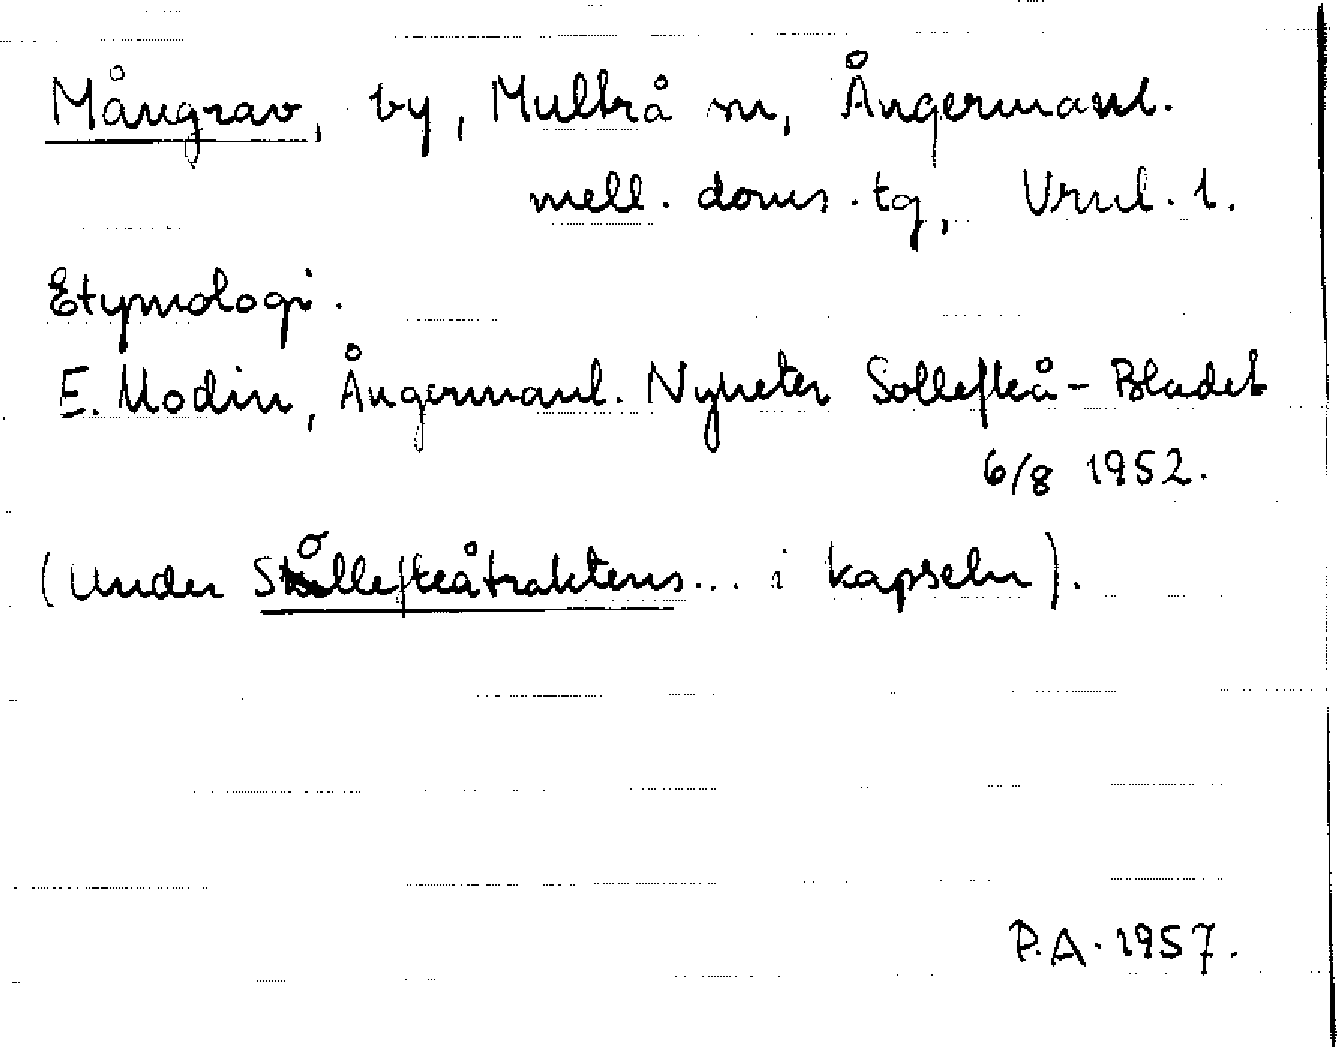 Mångrav, by, Multrå sn, Ångermanl.
mell. doms. tg, Vrnl. l.
Etymologi.
E. Modin, Ångermanl. Nyheter Sollefteå-Bladet
6/8 1952.
(Under Sollefteåtraktens... i kapseln).
P.A. 1957.